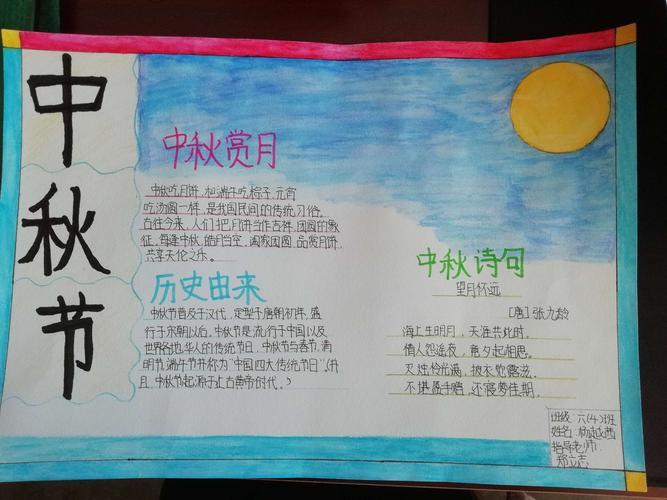 中秋节
中秋赏月
中秋吃月饼,和端午吃粽子,元宵
吃汤圆一样,是我国民间的传统习俗。
古往今来,人们把月饼当作吉祥,团圆的象
征,每逢中秋,皓月当空,阖家团圆,品赏月饼,
共享天伦之乐。
历史由来
中秋节普及于汉代,定型于唐朝初年,盛
行于宋朝以后。中秋节是流行于中国以及
世界各地华人的传统节日,中秋节与春节,清
明节,端午节并称为“中国四大传统节日”。(并
且,中秋节起源于上古黄帝时代。)
中秋诗句
望月怀远
[唐]张九龄
海上生明月,天涯共此时。
情人怨遥夜,竟夕起相思。
灭烛怜光满,披衣觉露滋。
不堪盈手赠,还寝梦佳期。
班级:六(4)班
姓名:杨越茜
指导老师:
郑立志